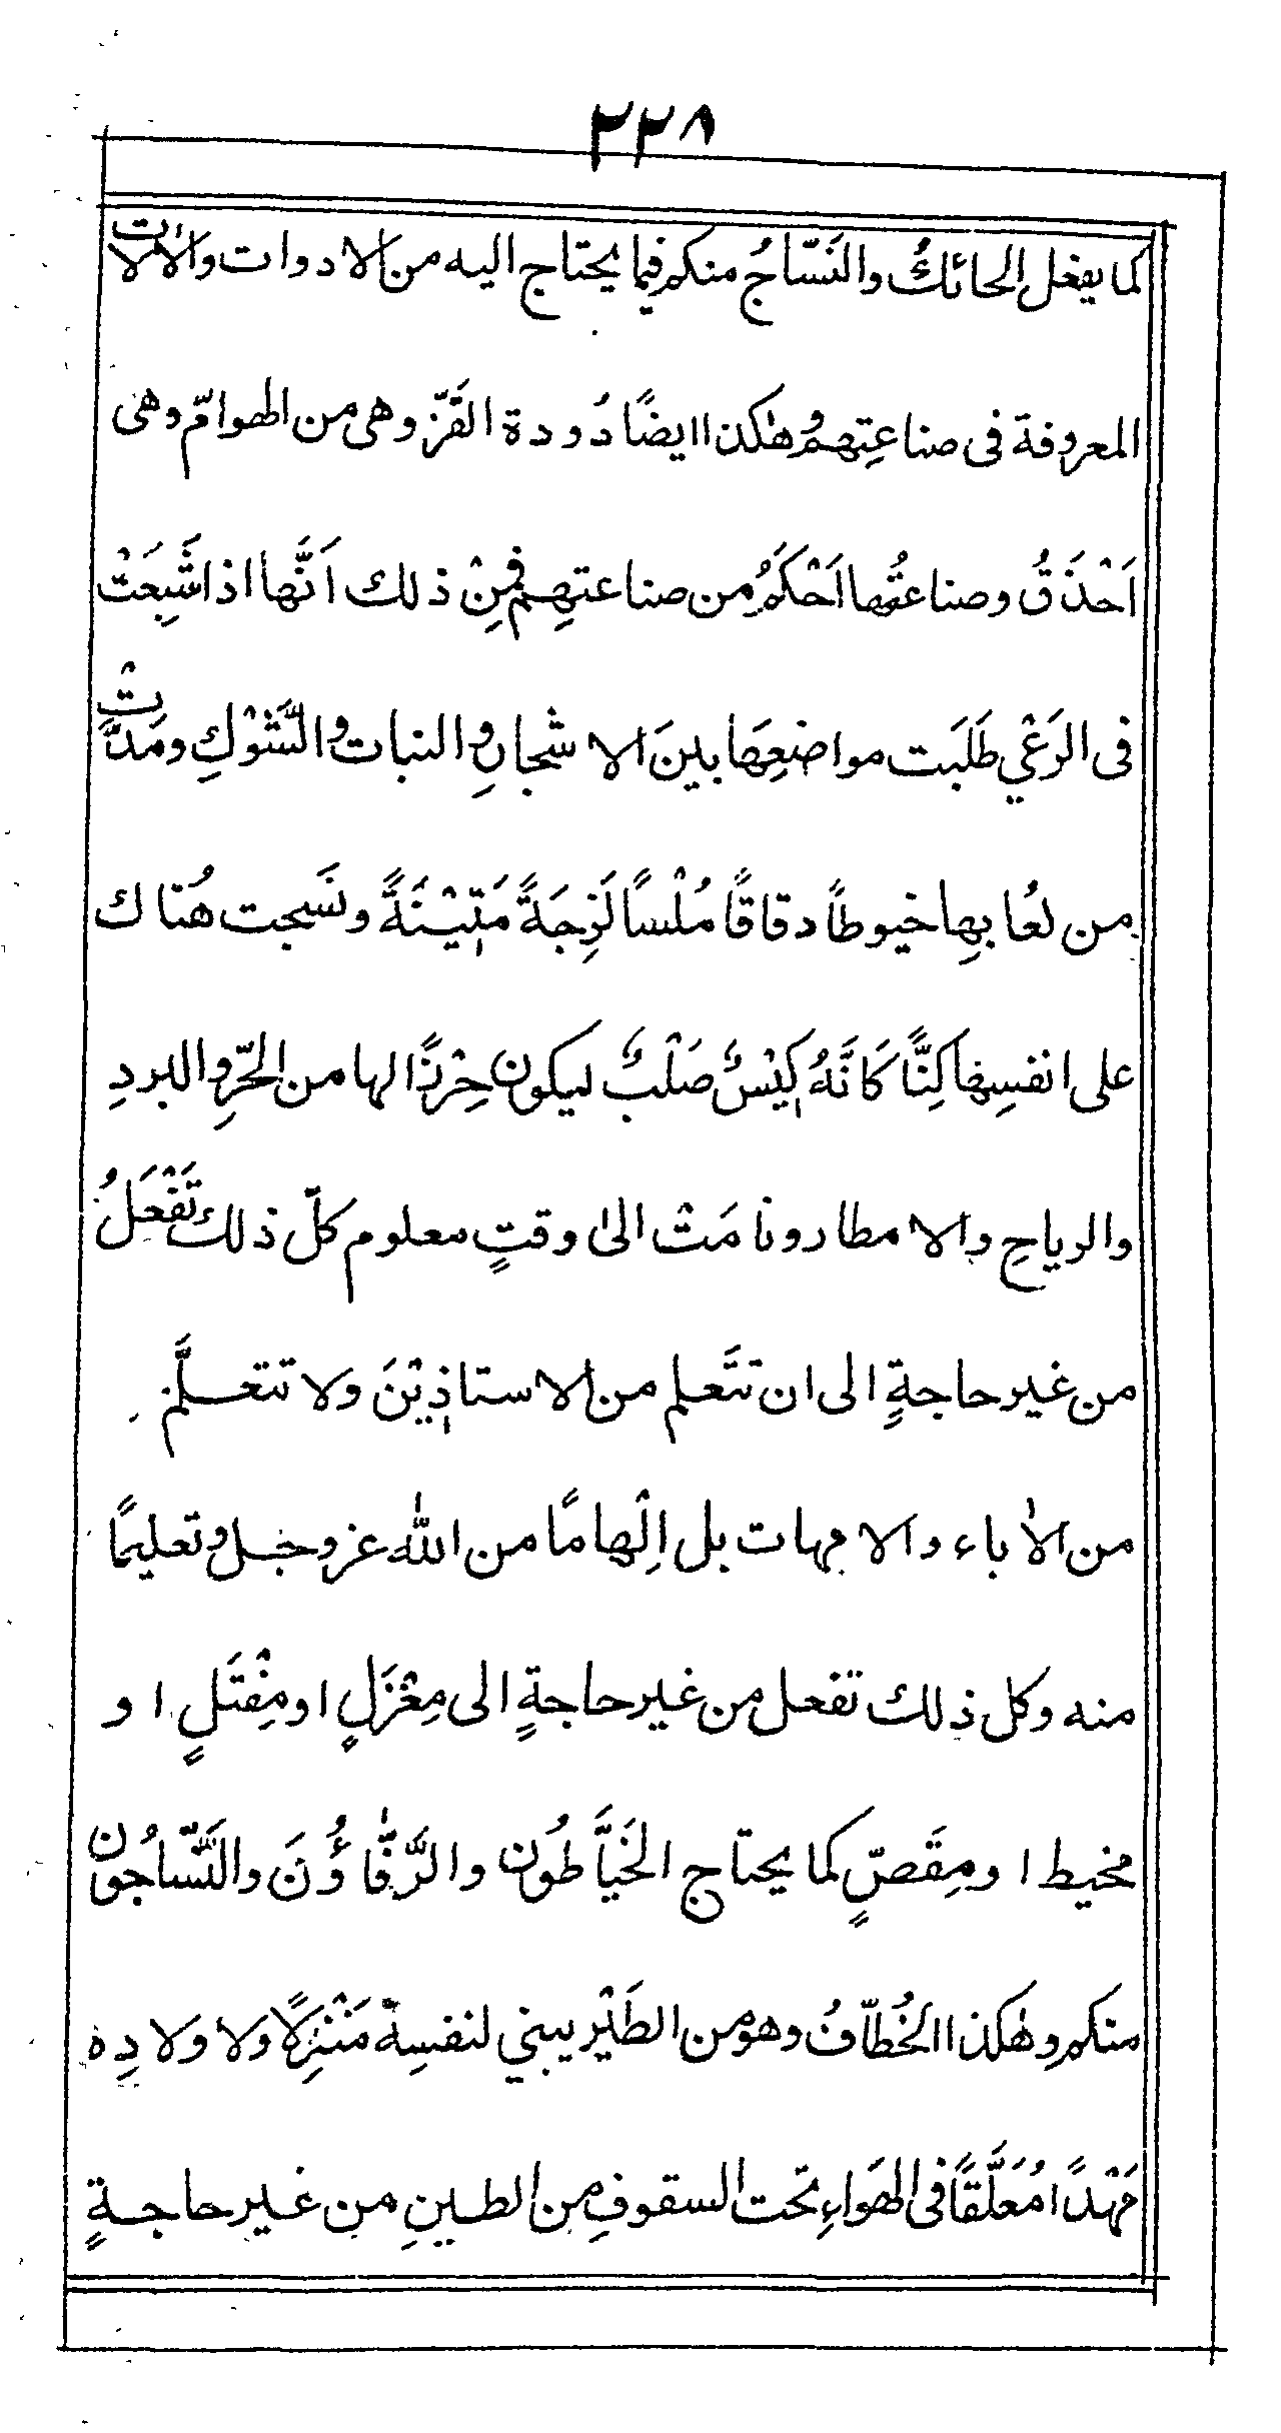 ٢٢٨
كما يفعل الحائكُ والنَسّاجُ منكم فيما يحتاج اليه من الادوات والاٰلات
المعروفة فى صناعتِهم وهٰكذا ايضًا دُودة القَزّ وهى من الهوامّ وهى
اَحْذَقُ وصناعتُها اَحْكَمُ من صناعتهِم فمِنْ ذلك اَنَّها اذا شَبِعَتْ
فى الرَعْيِ طَلَبَت مواضعِهَا بينَ الاشجارِ والنبات والشَّوْكِ ومَدَّتْ
من لعُابِها خيوطاً دقاقًا مُلْسًا لَزِجَةً مَتِيْنَةً ونَسجت هُناك
على انفسِها كِنًّا كَانَّهُ كِيْسٌ صَلْبٌ ليكون حِرْزًا لها من الحَرِّ والبردِ
والرياحِ والامطار ونامَتْ الىٰ وقتٍ معلوم كلّ ذلك تَفْعَلُ
من غير حاجةٍ الى ان تتَعلم من الاستاذِيْنَ ولا تتعلَّم
من الاٰباء والامهات بل اِلْهامًا من اللّٰه عز وجل وتعليمًا
منه وكل ذلك تفعل من غير حاجةٍ الى مِغْزَلٍ او مِفْتَلٍ او
مخيط او مِقَصٍّ كما يحتاج الخَيَّاطُون والرَّفَّاؤُنَ والنَّسّاجُون
منكم وهٰكذا الخُطّافُ وهو من الطَيْر يبني لنفسِهٖ مَنْزِلًا ولاولادِه
مَهْدًا مُعَلَّقًا فى الهَواءِ تحت السقوفِ من الطينِ من غير حاجةٍ